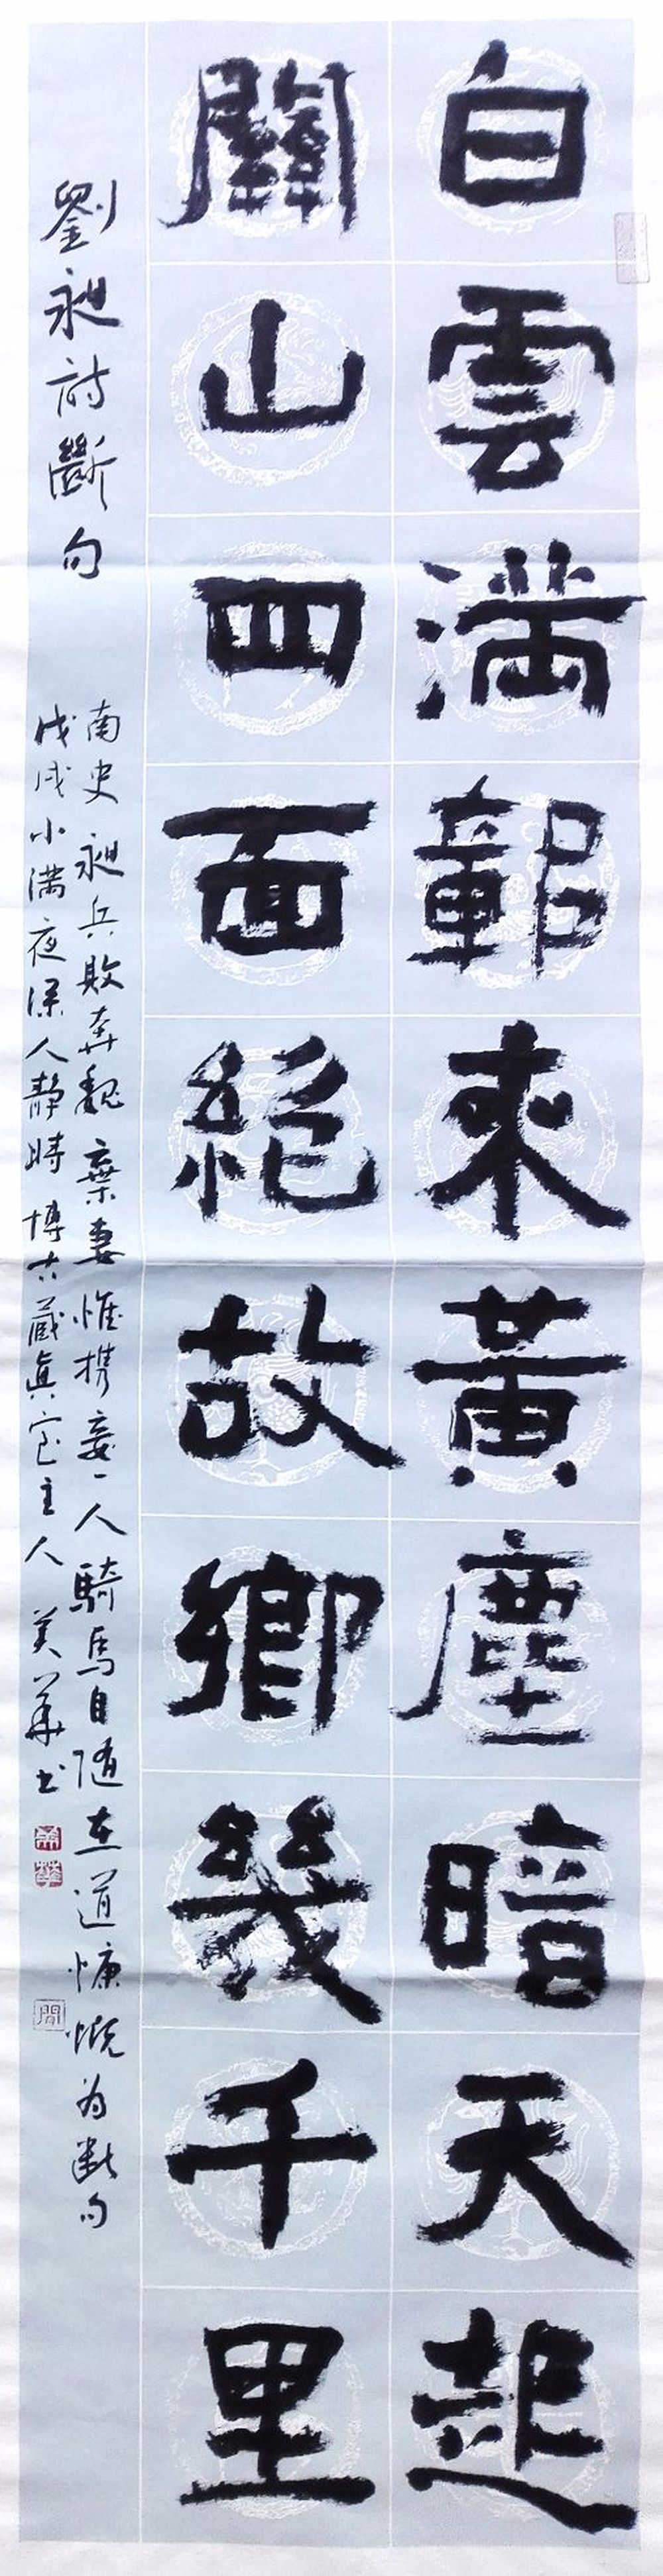 白雲满鄣来黃塵暗天起
關山四面絕故鄉幾千里
劉昶詩斷句
南史昶兵敗奔魏棄妻惟携妾一人騎馬自随在道慷慨为断句
戊戌小满夜深人静時博古藏真室主人美華书